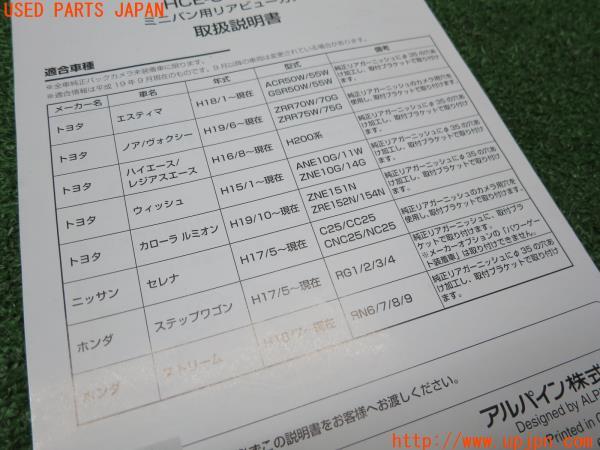 USED PARTS JAPAN
HCE-
ミニバン用リアビューカ
取扱説明書
適合車種
※全車純正バックカメラ未装着車に限ります。
※適合情報は平成19年9月現在のものです。9月以降の車両は変更している場合があります。
メーカー名 車名 年式 型式 備考
トヨタ エスティマ H18/1〜現在 ACR50W/55W GSR50W/55W 純正リアガーニッシュにφ35の穴あけ加工し、取付ブラケットで取り付けます。
トヨタ ノア/ヴォクシー H19/6〜現在 ZRR70W/70G ZRR75W/75G 純正リアガーニッシュのカメラ用穴を使用し、取付ブラケットで取り付けます。
トヨタ ハイエース/レジアスエース H16/8〜現在 H200系 純正リアガーニッシュにφ35の穴あけ加工し、取付ブラケットで取り付けます。
トヨタ ウィッシュ H15/1〜現在 ANE10G/11W ZNE10G/14G 純正リアガーニッシュにφ35の穴あけ加工し、取付ブラケットで取り付けます。
トヨタ カローラ ルミオン H19/10〜現在 ZNE151N ZRE152N/154N 純正リアガーニッシュのカメラ用穴を使用し、取付ブラケットで取り付けます。
ニッサン セレナ H17/5〜現在 C25/CC25 CNC25/NC25 純正リアガーニッシュに、取付ブラケットで取り付けます。 ※メーカーオプションの「パワーゲート装着車」は取り付けできません。
ホンダ ステップワゴン H17/5〜現在 RG1/2/3/4 純正リアガーニッシュにφ35の穴あけ加工し、取付ブラケットで取り付けます。
ホンダ ストリーム H18/7〜現在 RN6/7/8/9
この説明書をお客様へお渡しください。
アルパイン株式
Designed by ALP
Printed in C
http://www.upjpn.com/